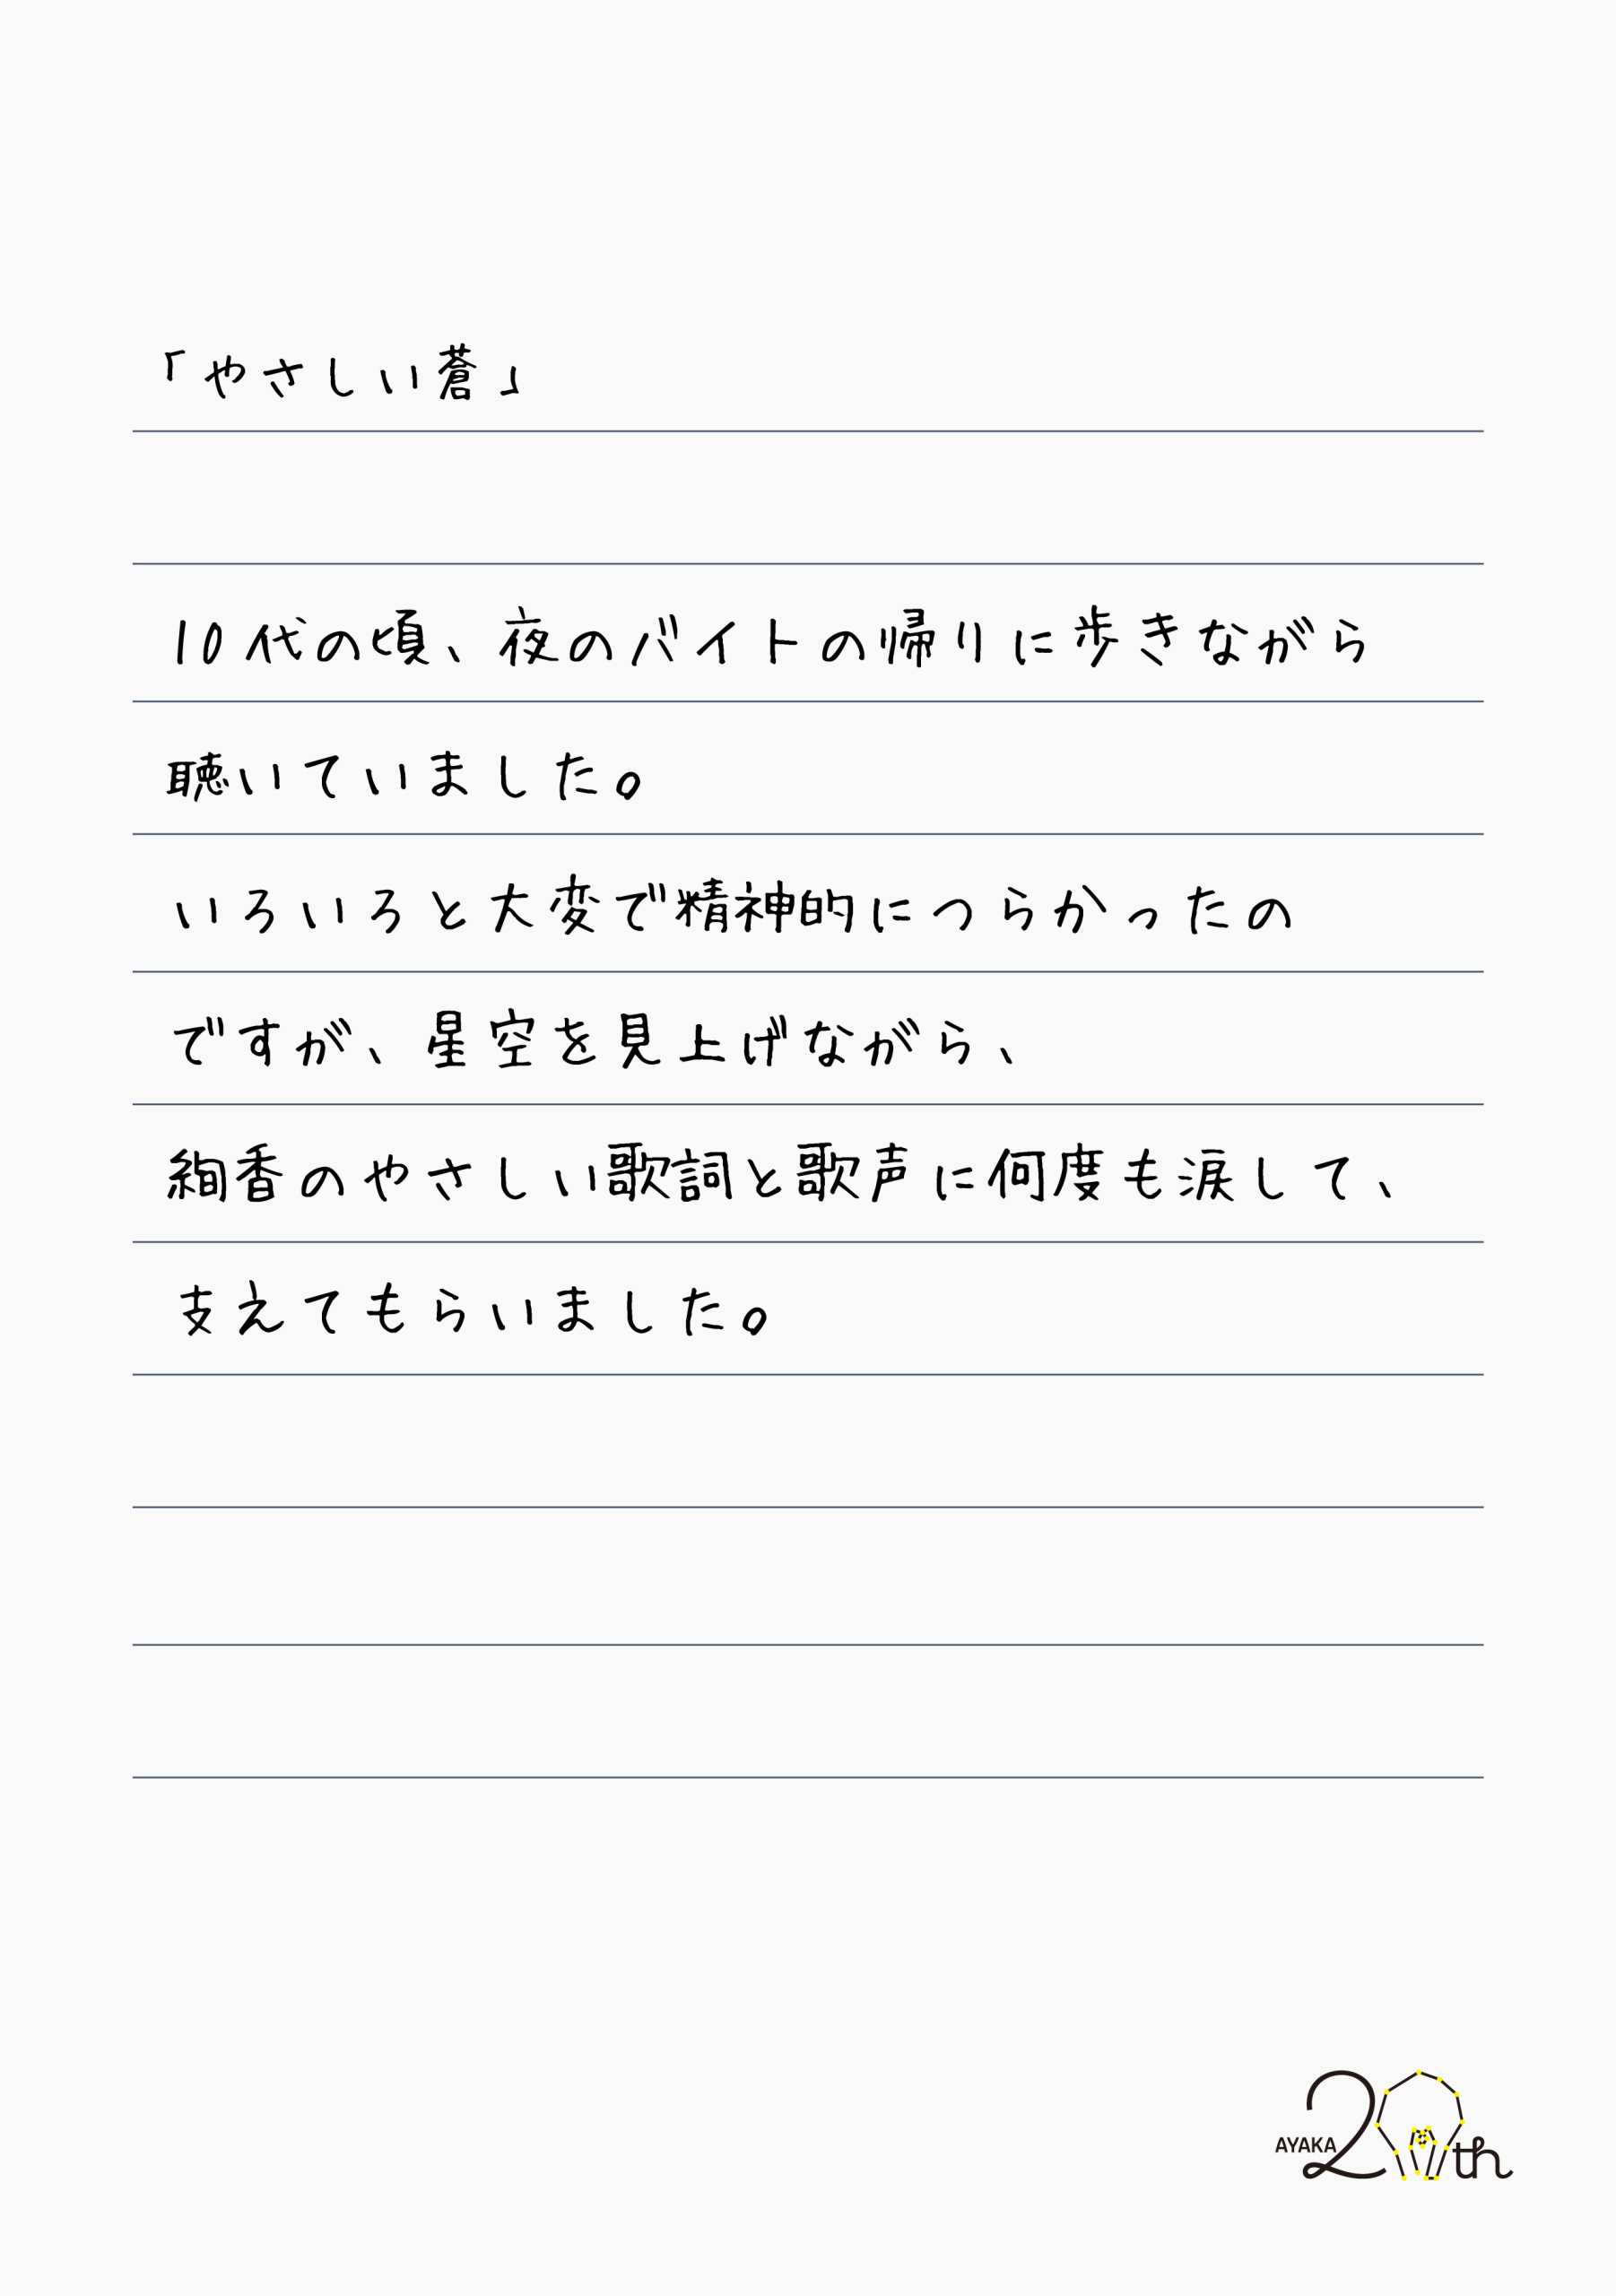 「やさしい蒼」
10代の夏、夜のバイトの帰りに歩きながら
聴いていました。
いろいろと大変で精神的につらかったの
ですが、星空を見上げながら、
絢香のやさしい歌詞と歌声に何度も涙して、
支えてもらいました。
AYAKA 20th